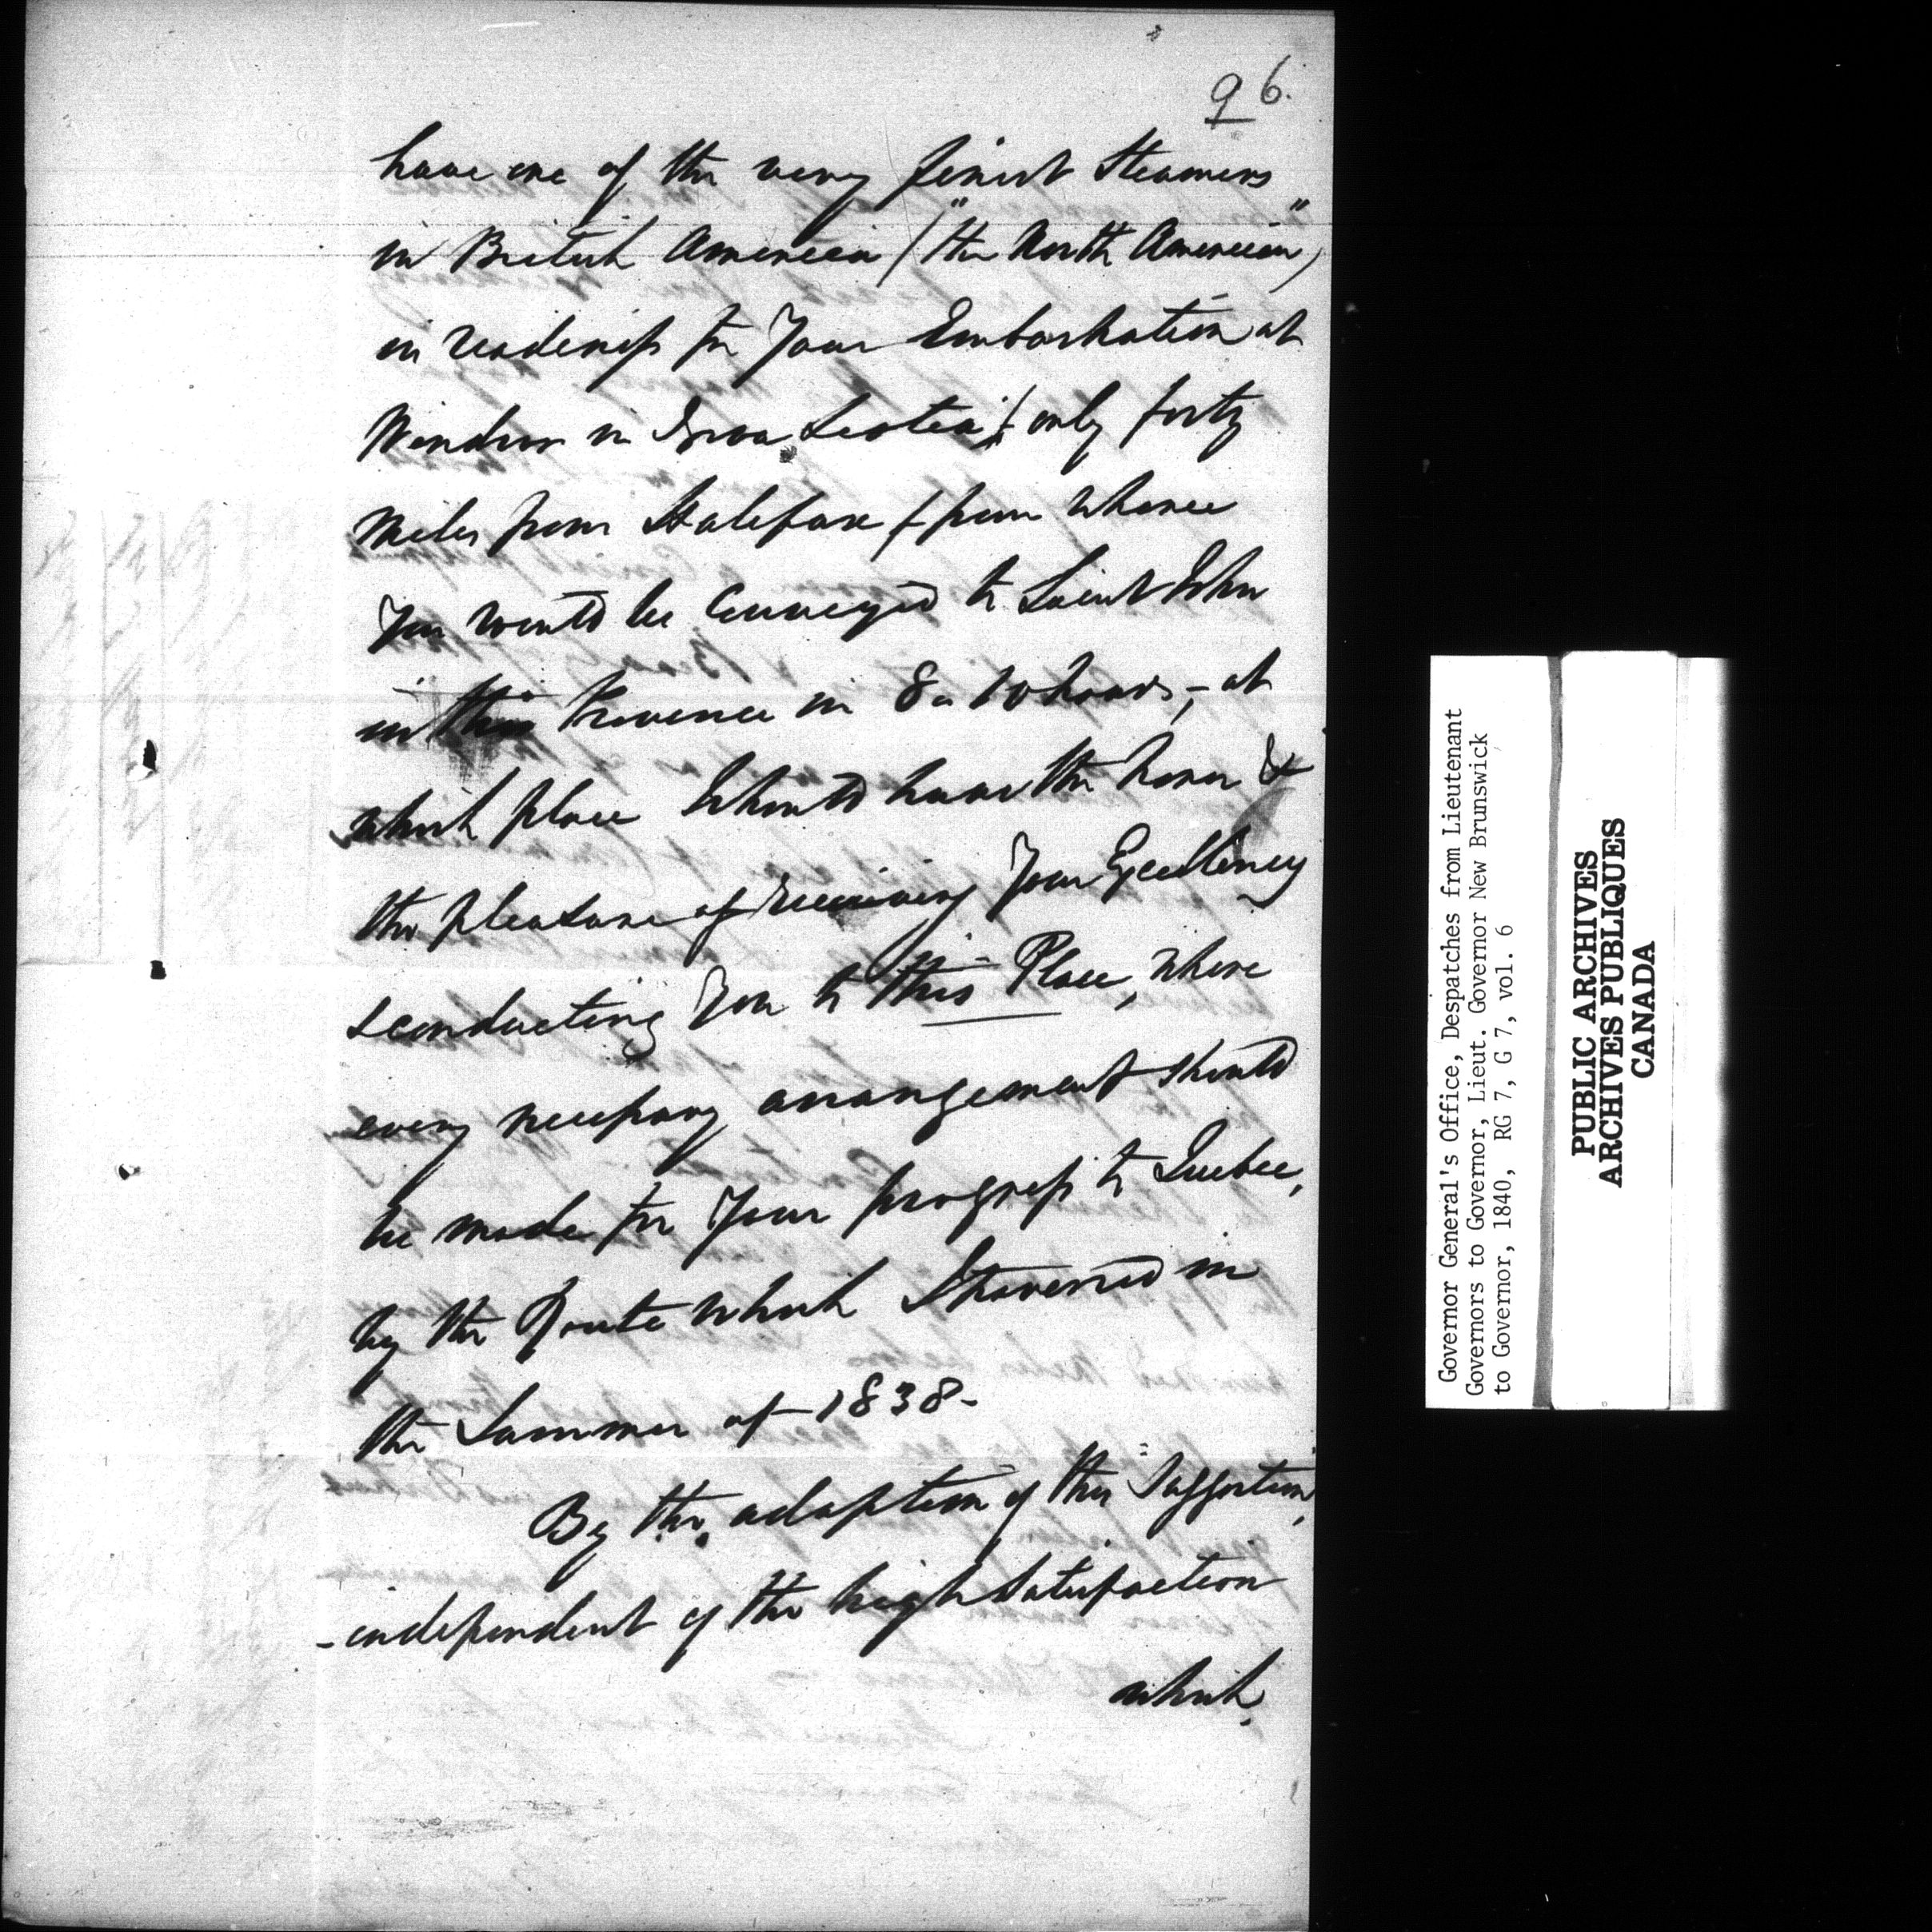 96.
have one of the very finest Steamers
in British America ("the North American")
in readiness for Your Embarkation at
Windsor in Nova Scotia, (only forty
Miles from Halifax) from whence
You would be Conveyed to Saint John
in this Province in 8 a 10 hours, - at
which place I should have the honor &
the pleasure of receiving Your Excellency
& conducting You to this Place, where
every necessary arrangement should
be made for Your progress to Quebec,
by the Route which I traversed in
the Summer of 1838-
By the adoption of this Suggestion,
-independent of the high Satisfaction
which,
Governor General's Office, Despatches from Lieutenant
Governors to Governor, Lieut. Governor New Brunswick
to Governor, 1840, RG 7, G 7, vol. 6
PUBLIC ARCHIVES
ARCHIVES PUBLIQUES
CANADA